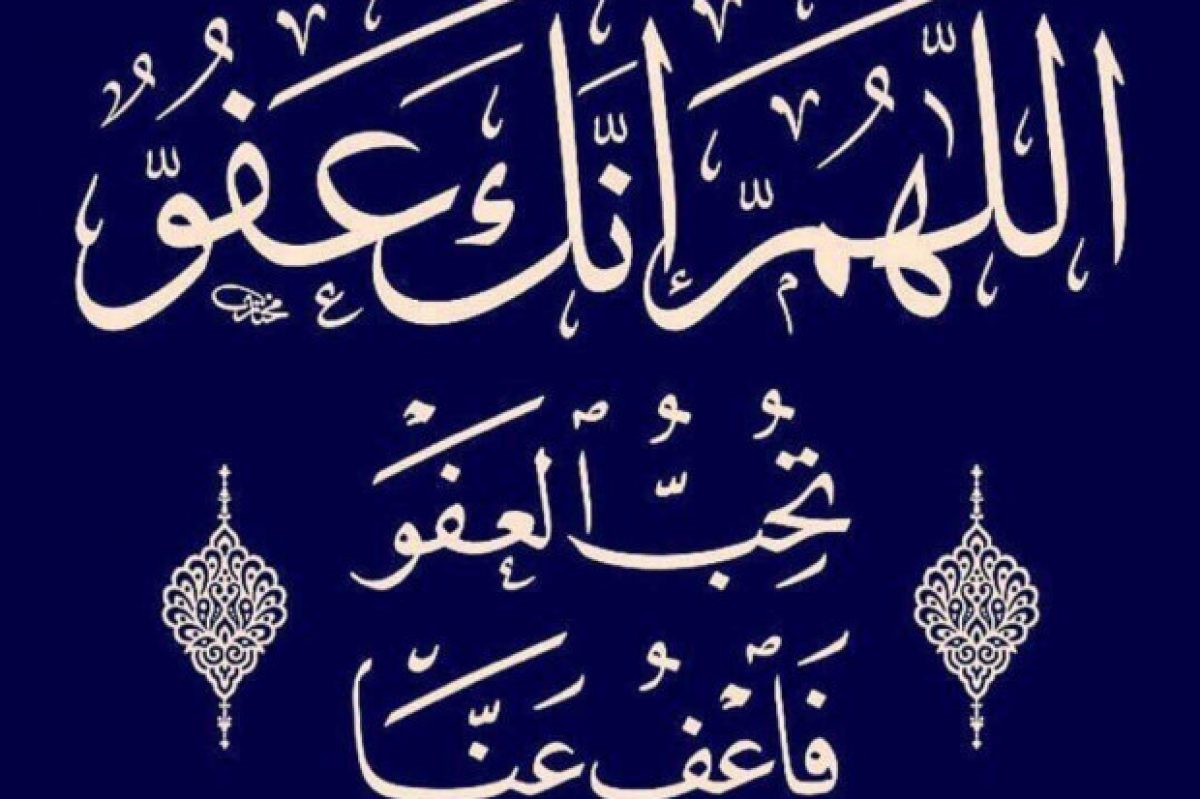 اللَّهُمَّ إِنَّكَ عَفُوٌّ
تُحِبُّ ٱلْعَفْوَ
فَٱعْفُ عَنَّا